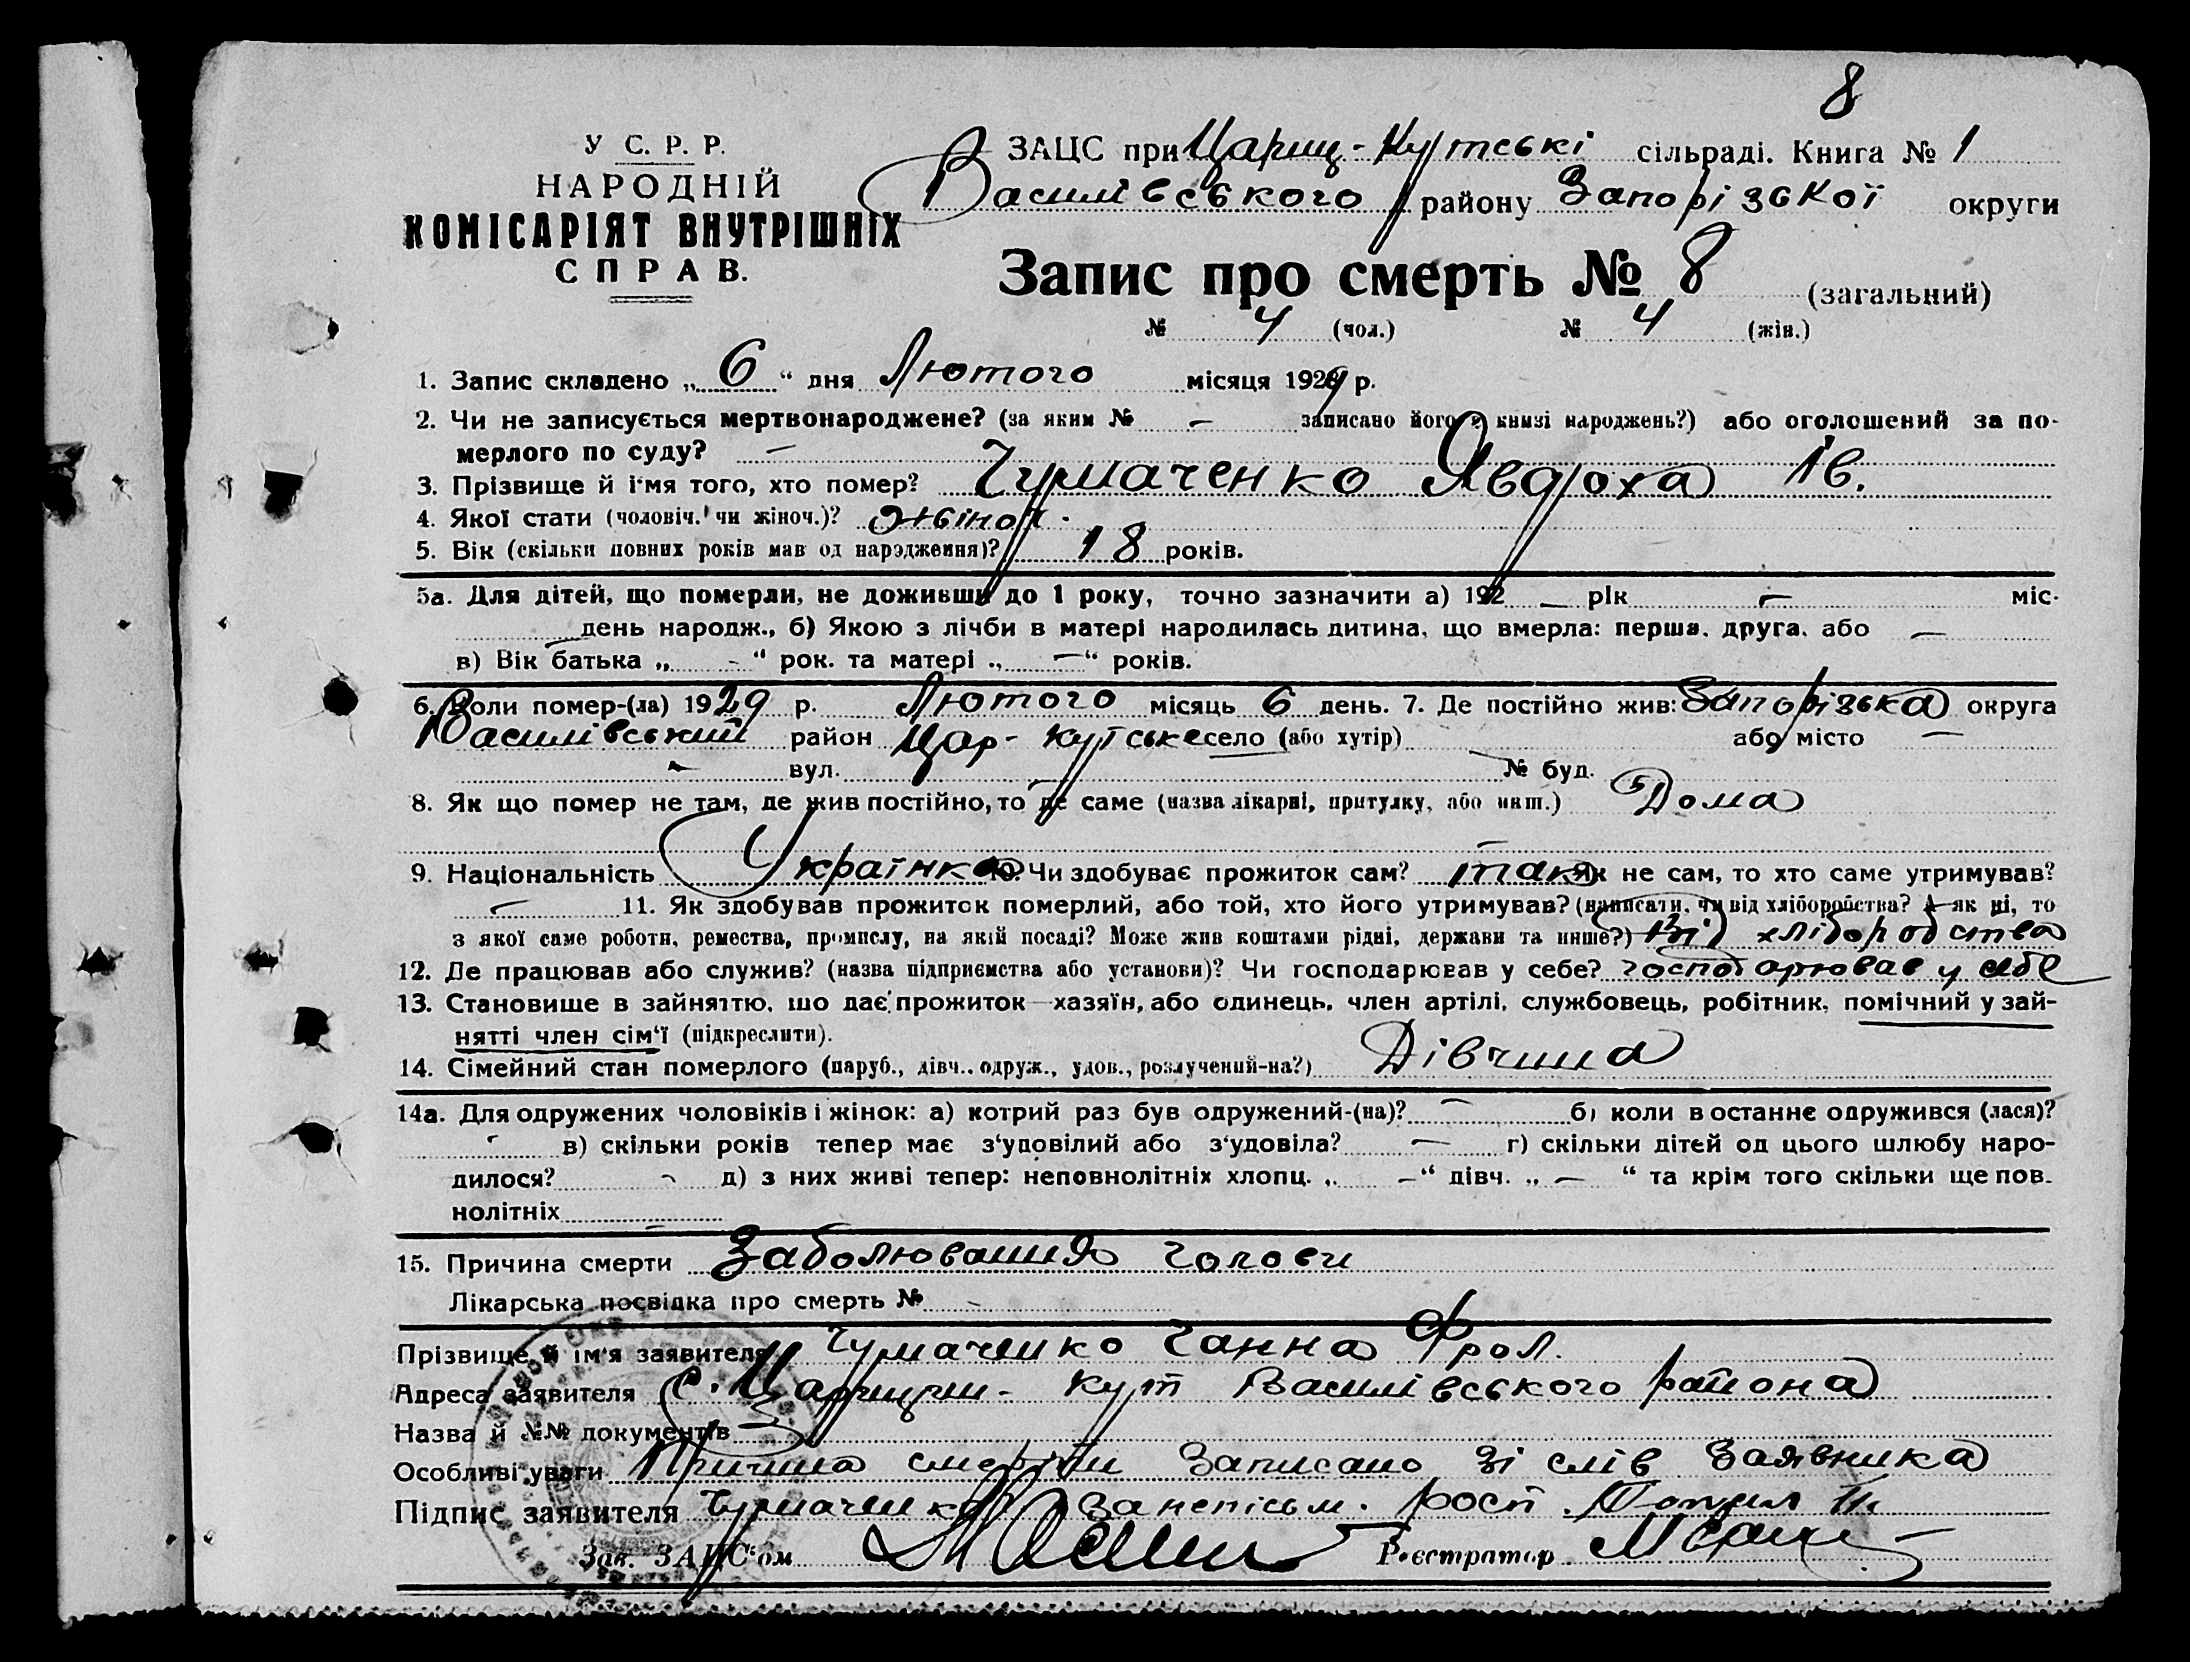 8
У С. Р. Р.
НАРОДНІЙ
КОМІСАРІЯТ ВНУТРІШНІХ
СПРАВ.
ЗАЦС при Цариц-Кутські сільраді. Книга № 1
Василівського району Запорізької округи
Запис про смерть № 8 (загальний)
№ 4 (чол.) № 4 (жін.)
1. Запис складено „ 6 “ дня Лютого місяця 1929 р.
2. Чи не записується мертвонароджене? (за яким № — записано його в книзі народжень?) або оголошений за по-
мерлого по суду? —
3. Прізвище й ім'я того, хто помер? Чумаченко Явдоха Ів.
4. Якої стати (чоловіч. чи жіноч.)? жіноч.
5. Вік (скільки повних років мав од народження)? 18 років.
5а. Для дітей, що померли, не доживши до 1 року, точно зазначити а) 192 — рік — міс.
— день народж., б) Якою з лічби в матері народилась дитина, що вмерла: перша, друга, або —
в) Вік батька „ - “ рок. та матері „ — “ років.
6. Коли помер-(ла) 1929 р. Лютого місяць 6 день. 7. Де постійно жив: Запорізька округа
Василівський район Цар-Кутське село (або хутір) — або місто —
- вул. — № буд. —
8. Як що помер не там, де жив постійно, то де саме (назва лікарні, притулку, або инш.) Дома
9. Національність Українка 10. Чи здобуває прожиток сам? так Як не сам, то хто саме утримував?
— 11. Як здобував прожиток померлий, або той, хто його утримував? (написати, чи від хліборобства? А як ні, то
з якої саме роботи, ремества, промислу, на якій посаді? Може жив коштами рідні, держави та инше?) Від хліборобства
12. Де працював або служив? (назва підприємства або установи)? Чи господарював у себе? господарював у себе
13. Становище в зайняттю, що дає прожиток—хазяїн, або одинець, член артілі, службовець, робітник, помічний у зай-
нятті член сім'ї (підкреслити).
14. Сімейний стан померлого (паруб., дівч., одруж., удов., розлучений-на?) Дівчина
14а. Для одружених чоловіків і жінок: а) котрий раз був одружений-(на)? — б) коли востаннє одружився (лася)?
- в) скільки років тепер має з'удовілий або з'удовіла? — г) скільки дітей од цього шлюбу наро-
дилося? - д) з них живі тепер: неповнолітніх хлопц. „ — “ дівч. „ — “ та крім того скільки ще пов-
нолітніх
15. Причина смерти Заболювання голови
Лікарська посвідка про смерть № -
Прізвище й ім'я заявителя Чумаченко Ганна Фрол.
Адреса заявителя с. Царицин-Кут Василівського района
Назва й №№ документів
Особливі уваги Причина смерти Записано зі слів Заявника
Підпис заявителя Чумаченко За неписьм. росп.
Зав. ЗАЦС'ом Реєстратор